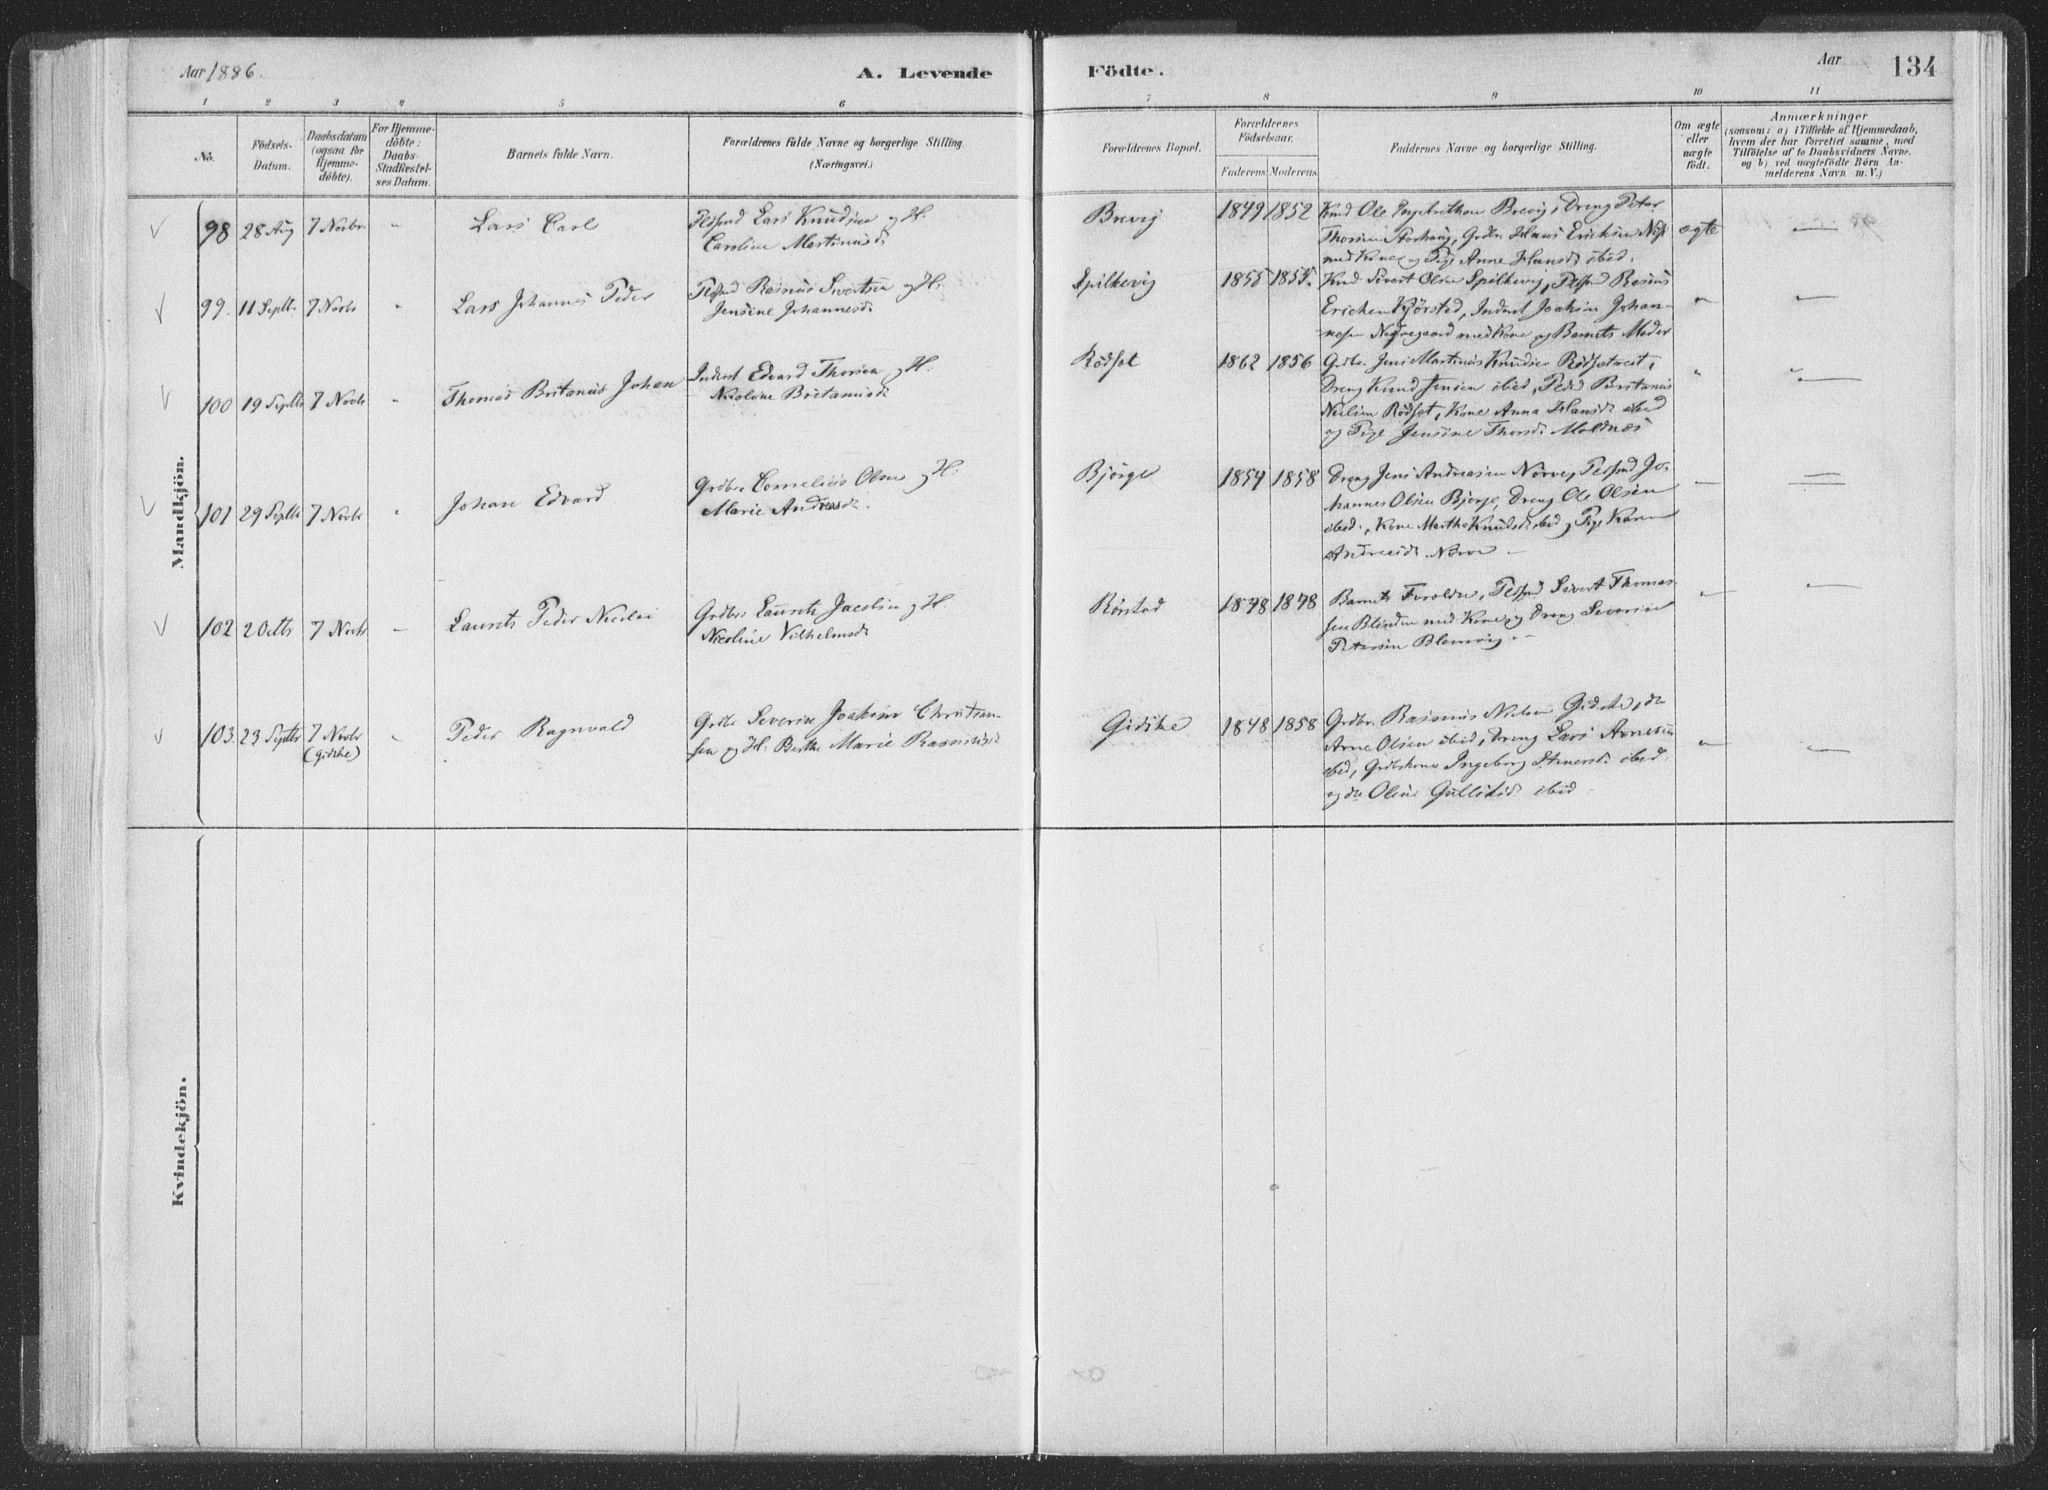 Aar 1886.
A. Levende
Födte.
Aar
134
1 2 3 4 5 6 7 8 9 10 11
No.
Födsels-
Datum.
Daabsdatum
(ogsaa for
Hjemme-
döbte).
For Hjemme-
döbte:
Daabs-
Stadfæstel-
ses Datum.
Barnets fulde Navn.
Forældrenes fulde Navne og borgerlige Stilling.
(Næringsvei.)
Forældrenes Bopæl.
Forældrenes
Födselsaar.
Faderens Moderens
Faddernes Navne og borgerlige Stilling.
Om ægte
eller
uægte
födt.
Anmærkninger
(saasom: a) i Tilfælde af Hjemmedaab,
hvem der har forrettet samme, med
Tilföielse af to Daabsvidners Navne,
og b) ved uægtefödte Börn An-
melderens Navn m.V.)
Mandkjön.
98 28 Aug 7 Novbr. " Lars Carl
Lars Knudsen og H.
Caroline Martinusd.
Brevig 1849 1852
Brevig, Dreng Peter
Thorsen Storhaug, Grdbr. Hans Ericksen
med Kone og Pige Anne Hansd. ibid.
ægte
99. 11 Septb. 7 Novbr " Lars Johannes Peder
Rasmus Sivertsen og H.
Jensine Johannesd.
Spilkevig 1855 1855.
Sivert Olsen Spilkevig, Rasmus
Ericksen Kjørstad, Inderst Joakim Johan-
nesen med Kone og Barnets Moder
"
100 19 Septbr 7 Novbr " Thomas Britanus Johan
Inderst Edvard Thorsen og H.
Nicoline Britanusd.
Rödset 1862 1856
Grdbr. Jens Martinus Knudsen
Dreng Knud Jensen ibid, Britanus
Nielsen Rödset, Kone Anna Hansd. ibid
og Pige Jensine Thorsd. Moldnæs
"
101 29 Septbr 7 Novbr " Johan Edvard
Grdbr. Cornelius Olsen og H.
Marie Andreasd.
Bjørge 1854 1858
Dreng Jens Andreasen Nørve, Jo-
hannes Olsen Bjørge, Dreng Ole Olsen
ibid., Kone Marthe Knudsd. ibid og Pige Karen
Andreasd. Nørve
102 2 Octbr 7 Novbr Laurits Peder Nicolai
Grdbr. Laurits Jacobsen og H
Nicoline Vilhelmsd.
Rørstad 1848 1848
Barnets Forældre, Sivert Thomas-
sen Blinden med Kone og Dreng Severin
Petersen Blomvig.
103. 23 Septbr 7 Novbr
(Gidske)
" Peder Ragnvald
Grdbr Severin Joakim Christian-
sen og H. Berthe Marie Rasmusd.
Gidske 1848 1858
Grdbr. Rasmus Nielsen Gidske, do
Arne Olsen ibid, Dreng Lars Arnesen
ibid, Grdbrkone Ingeborg Steners d. ibid
og do Oline Gullikd. ibid
"
Kvindekjön.